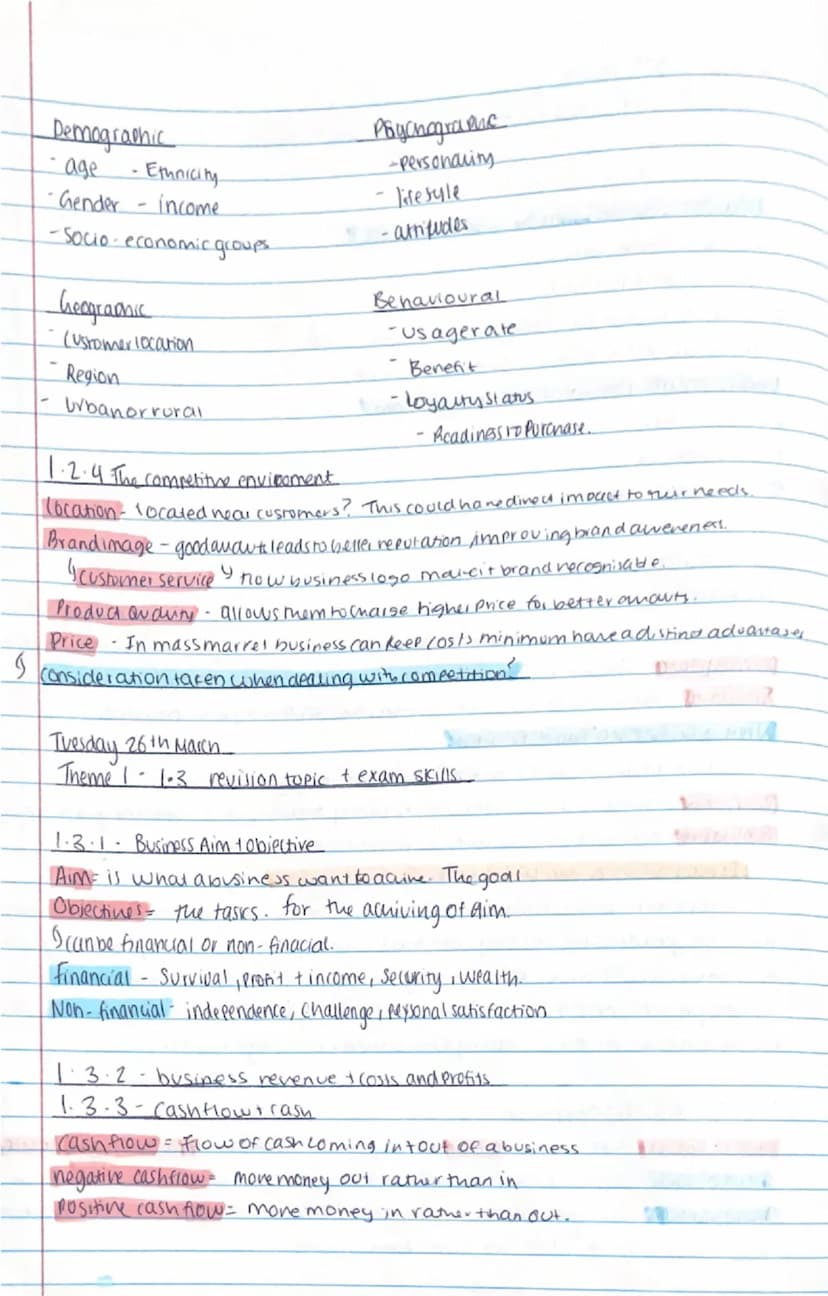 Demographic
- age - Ethnicity
- Gender - income
- Socio-economic groups
Psychographic
- personality
- lifestyle
- attitudes
Geographic
- Customer location
- Region
- Urban or rural
Behavioural
- usage rate
- Benefit
- Loyalty status
- Readiness to Purchase.
1.2.4 The competitive enviroment
Location - located near customers? This could have direct impact to their needs.
Brand image - good leads to better reputation, improving brand
↳ customer service ↳ how business logo make it brand recognisable.
Product quality - allows them to charge higher price for better
Price - In mass market business can keep costs minimum have a distinct advantage,
↳ consideration taken when dealing with competition?
Tuesday 26th March
Theme 1 - 1.3 revision topic + exam skills
1.3.1 - Business Aim + objective
Aim = is what a business want to The goal
Objectives = the tasks. for the achiving of aim.
↳ can be financial or non-finacial.
financial - survival, profit + income, security, wealth.
Non-financial - independence, challenge, personal satisfaction
1.3.2 - business revenue + costs and profits
1.3.3 - cashflow + cash
cashflow = flow of cash coming in + out of a business
negative cashflow = more money out rather than in
positive cashflow = more money in rather than out.